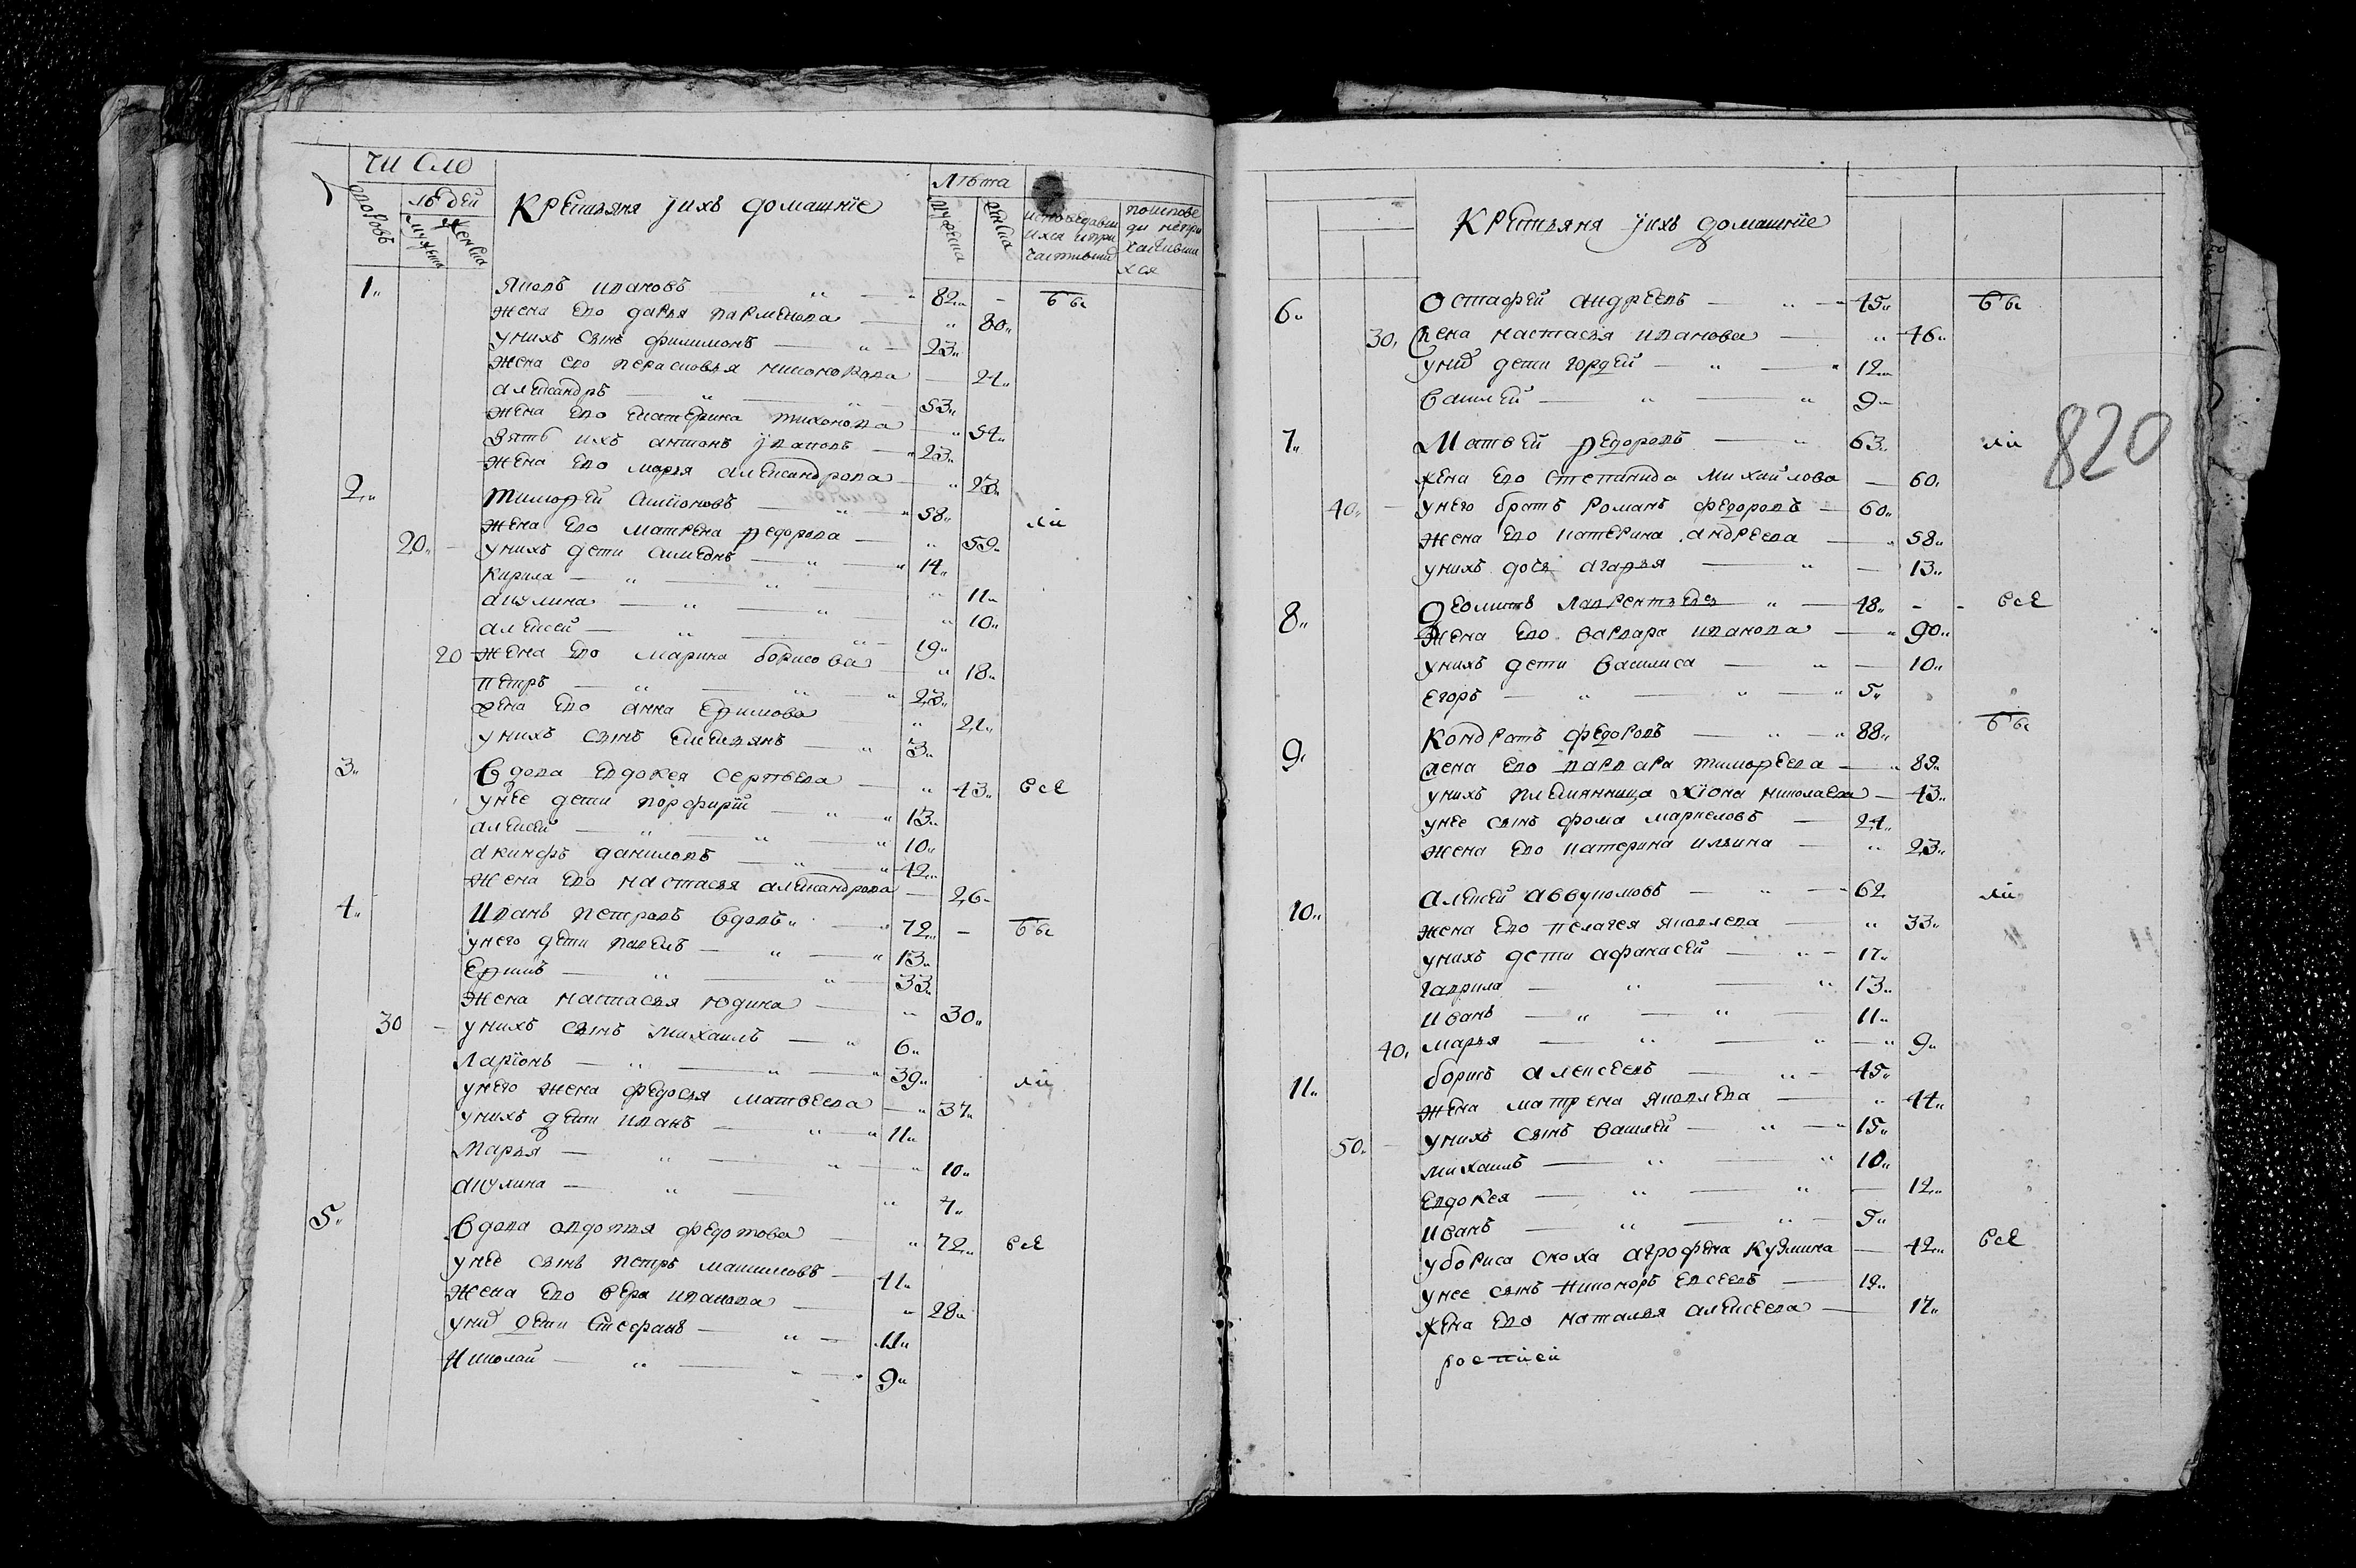 число
дворовъ
людей
мужеска
женска
Крестьяня ј ихъ домашнїе
лѣта
мужеска
женска
исповедавши
ихся и при
частивши
по испове
ди непри
частивши
хся
1 Яковъ ивановъ 82 ббс
жена ево дарья парменова 80
у нихъ сынъ филимонъ 23
жена ево перасковья никонорова 21
александръ 53
жена ево екатерина тихонова 54
зять ихъ антонъ јвановъ 23
жена ево марья александрова 23
2 тимофей симїоновъ 58 лй
жена ево матрена федорова 59
20 у нихъ дети симеонъ 14
кирила 11
акулина 10
алексей 19
20 жена ево марина борисова 18
петръ 23
жена ево анна ефимова 21
у нихъ сынъ емельянъ 3
3 вдова евдокея сергѣева 43 всѣ
у нее дети порфирїй 13
алексей 10
акинфъ даниловъ 42
жена ево настасья александрова 26
4 иванъ петровъ вдовъ 72 ббс
у него дети павелъ 13
ефимъ 33
жена настасья юдина 30
30 у нихъ сынъ михаилъ 6
ларїонъ 39 лй
у него жена федосья матвеева 37
у нихъ дети иванъ 11
марья 10
акулина 4
5 вдова авдотья федотова 72 всѣ
у нее сынъ петръ максимовъ 41
жена ево вера иванова 28
у них дети стефанъ 11
николай 9
820
Крестьяня ј ихъ домашнїе
6 остафей андреевъ 45 ббс
30 жена настасья иванова 46
у них дети гордей 12
василей 9
7 матвей федоровъ 63 лй
жена ево степанида михайлова 60
40 у него братъ романъ федоровъ 60
жена ево катерина андреева 58
у нихъ дочь агафья 13
8 феоктистъ лаврентьевъ 48 всѣ
жена ево варвара иванова 90
у нихъ дети василиса 10
егоръ 5
9 кондратъ федоровъ 88 ббс
жена ево варвара тимофеева 89
у нихъ племянница хїона николаева 43
у нее сынъ фома маркеловъ 24
жена ево катерина ильина 23
10 алексей аввукомовъ 62 лй
жена ево пелагея яковлева 33
у нихъ дети афанасей 17
гаврила 13
иванъ 11
40 марья 9
11 борисъ алексеевъ 45
жена матрена яковлева 44
50 у нихъ сынъ василей 15
михаилъ 10
евдокея 12
иванъ 5
у бориса сноха агрофена кузмина 42 всѣ
у нее сынъ никоноръ евсеевъ 18
жена ево наталья алексеева 17
росписи